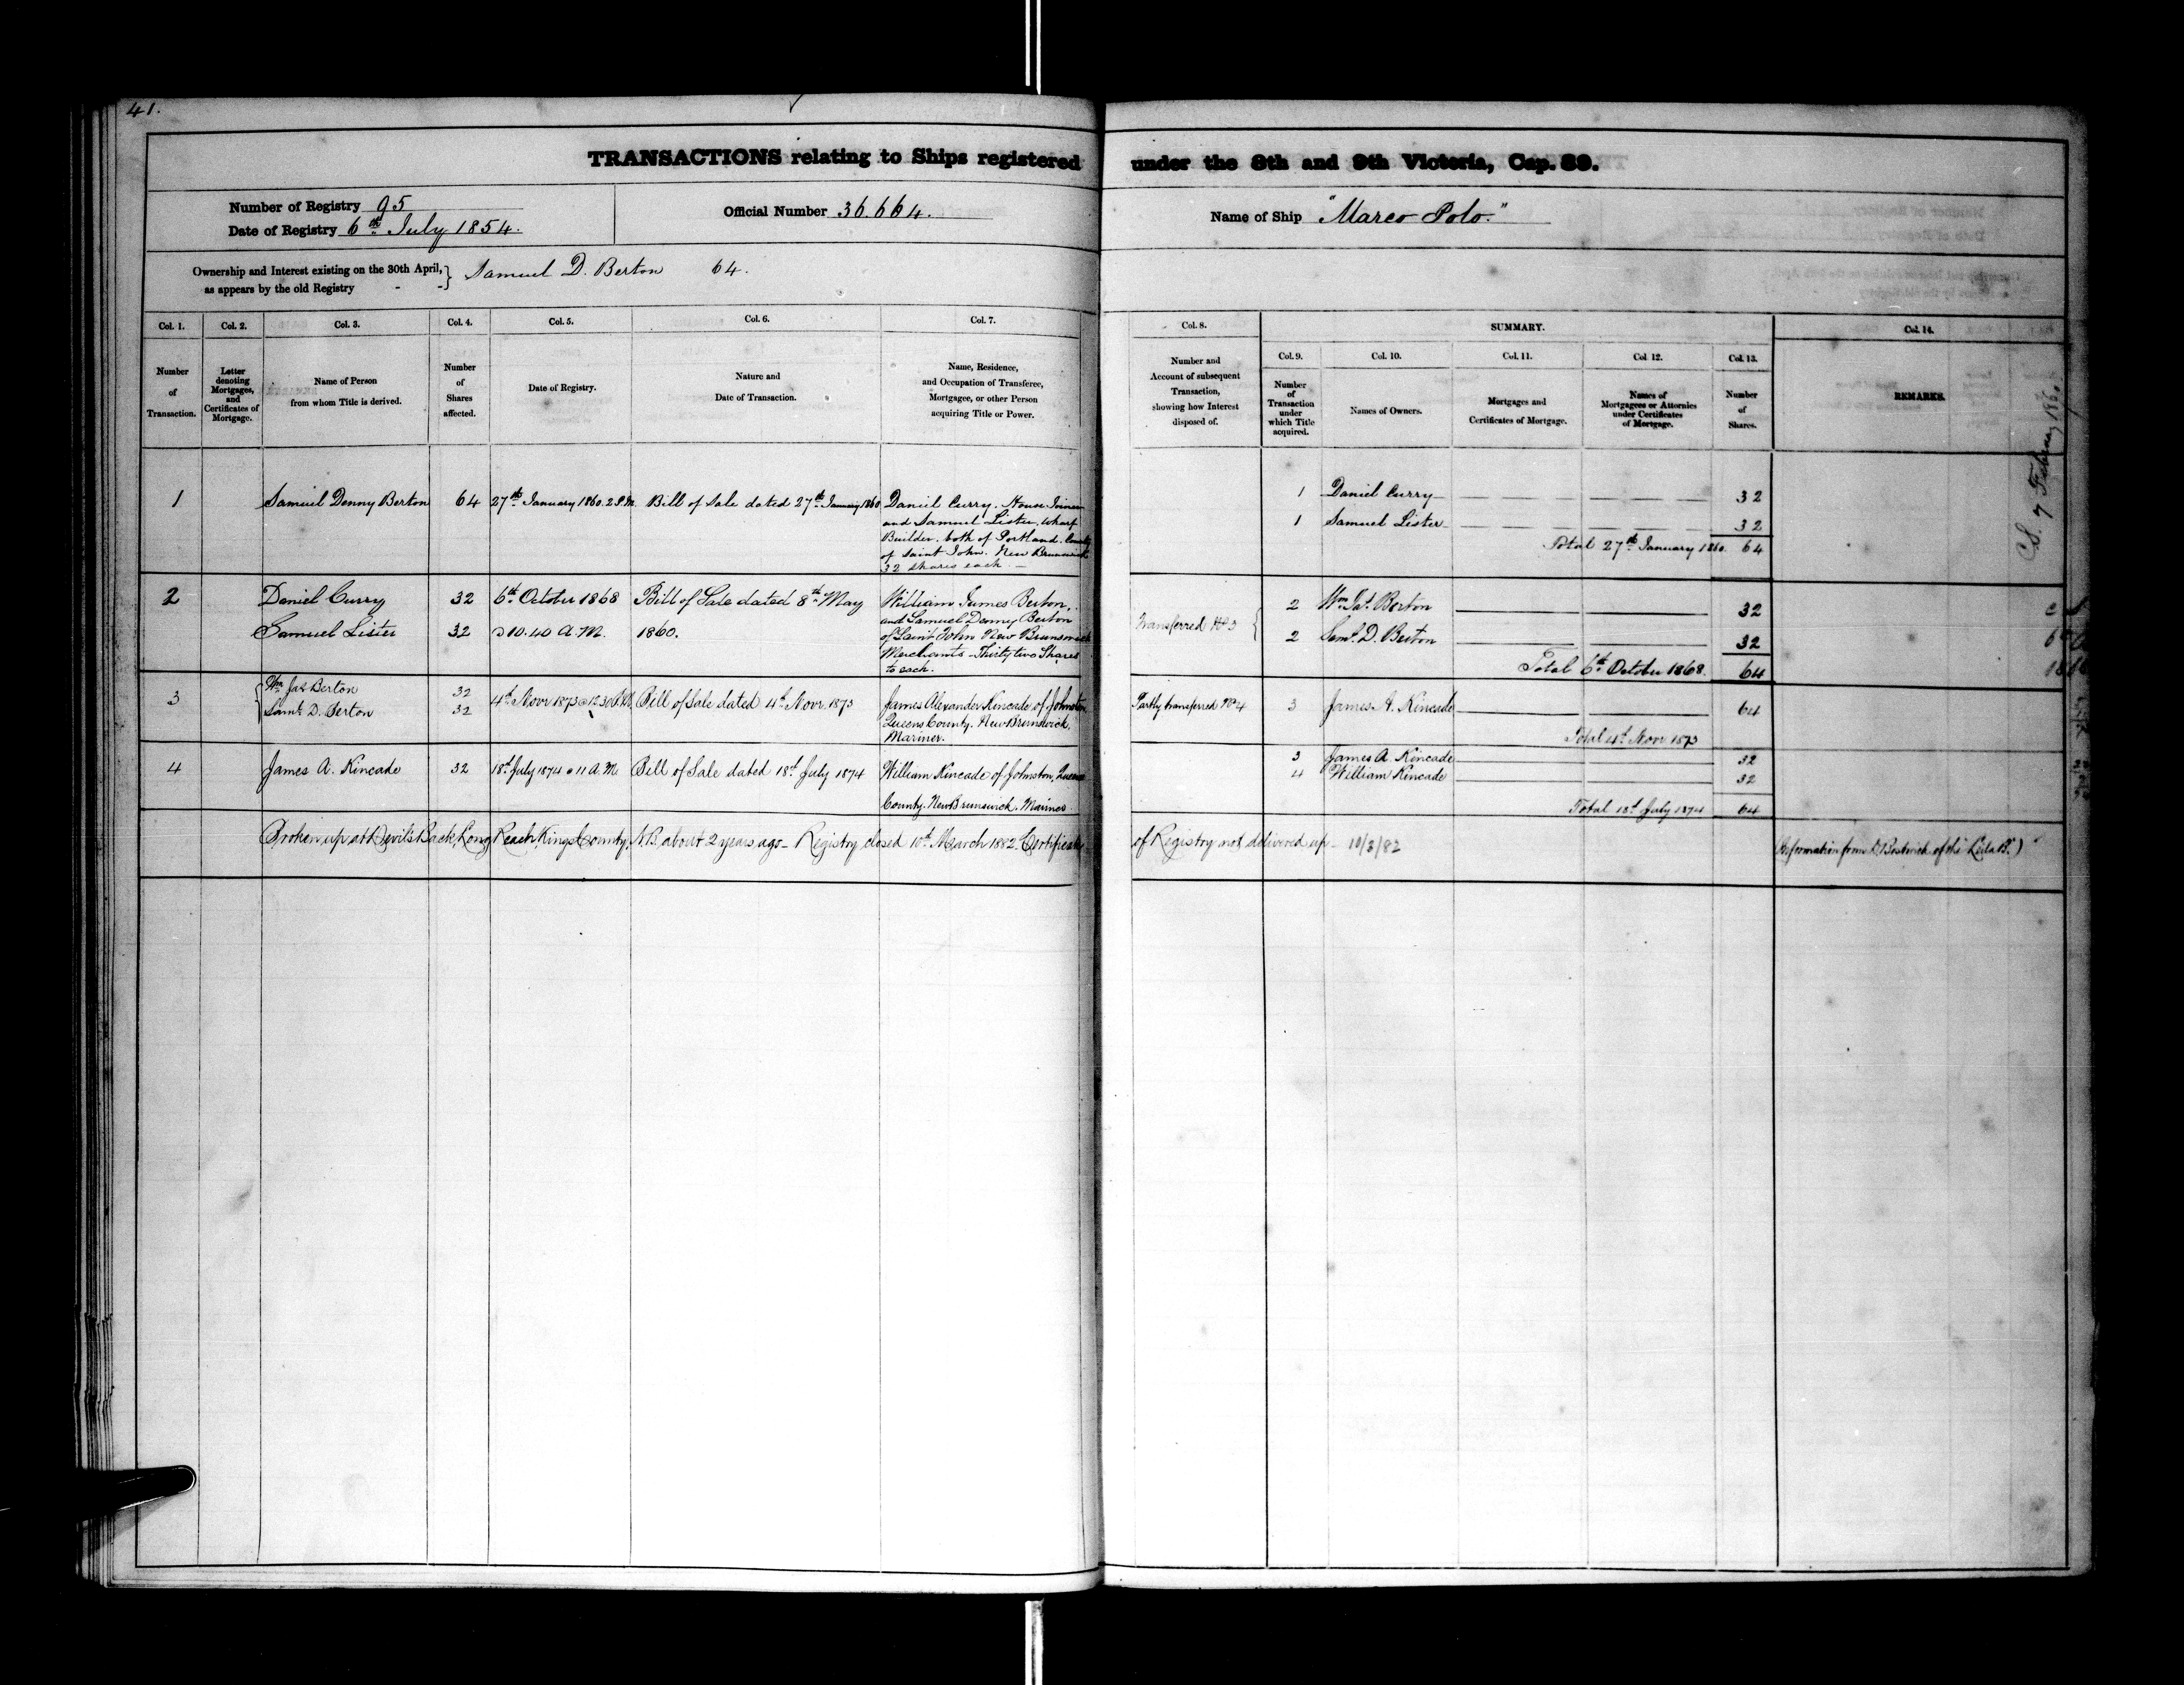 41.
TRANSACTIONS relating to Ships registered under the 8th and 9th Victoria, Cap. 89.
Number of Registry 95
Date of Registry 6th July 1854.
Official Number 36.664.
Name of Ship "Marco Polo."
Ownership and Interest existing on the 30th April,
as appears by the old Registry - -
} Samuel D. Berton 64.
Col. 1.
Number
of
Transaction.
Col. 2.
Letter
denoting
Mortgages,
and
Certificates of
Mortgage.
Col. 3.
Name of Person
from whom Title is derived.
Col. 4.
Number
of
Shares
affected.
Col. 5.
Date of Registry.
Col. 6.
Nature and
Date of Transaction.
Col. 7.
Name, Residence,
and Occupation of Transferee,
Mortgagee, or other Person
acquiring Title or Power.
Col. 8.
Number and
Account of subsequent
Transaction,
showing how Interest
disposed of.
SUMMARY.
Col. 9.
Number
of
Transaction
under
which Title
acquired.
Col. 10.
Names of Owners.
Col. 11.
Mortgages and
Certificates of Mortgage.
Col. 12.
Names of
Mortgagees or Attornies
under Certificates
of Mortgage.
Col. 13.
Number
of
Shares.
Col. 14.
REMARKS.
1
Samuel Denny Berton
64
27th January 1860. 2 P.M.
Bill of Sale dated 27th January 1860
Daniel Curry. House Joiner
and Samuel Lister, Wharf
Builder. both of Portland. County
of Saint John. New Brunswick
32 shares each. —
1 Daniel Curry 32
1 Samuel Lister 32
Total 27th January 1860. 64
7 February 1860
2
Daniel Curry
Samuel Lister
32
32
6th October 1868
@ 10.40 A.M.
Bill of Sale dated 8th May
1860.
William James Berton,
and Samuel Denny Berton
of Saint John New Brunswick
Merchants - Thirty two Shares
to each.
Transferred No 3 {
2 Wm Jas. Berton 32
2 Saml. D. Berton 32
Total 6th October 1868. 64
3
{ Wm Jas Berton
Saml D. Berton
32
32
4th Novr 1873 @ 12.30
Bill of Sale dated 4th Novr. 1873
James Alexander Kincade of Johnston
Queens County. New Brunswick.
Mariner.
Partly transferred No 4
3 James A. Kincade 64
Total 4th Novr 1873
4
James A. Kincade
32
18th July 1874 @ 11 A.M.
Bill of Sale dated 18th July 1874
William Kincade of Johnston, Queens
County. New Brunswick. Mariner
3 James A. Kincade 32
4 William Kincade 32
Total 18th July 1874 64
Broken up at Devils Back, Long Reach, Kings County, N.B. about 2 years ago - Registry closed 10th March 1882. Certificate of Registry not delivered up - 10/3/82
(Information from Bostwick of the